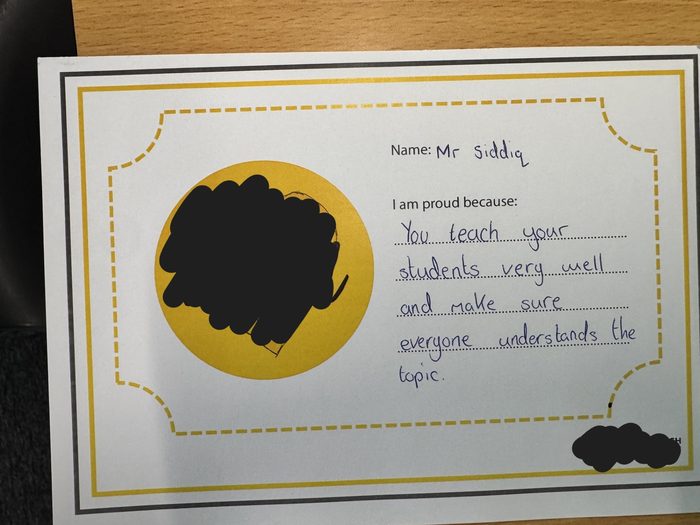 Name: Mr Siddiq
I am proud because:
You teach your
students very well
and make sure
everyone understands the
topic.